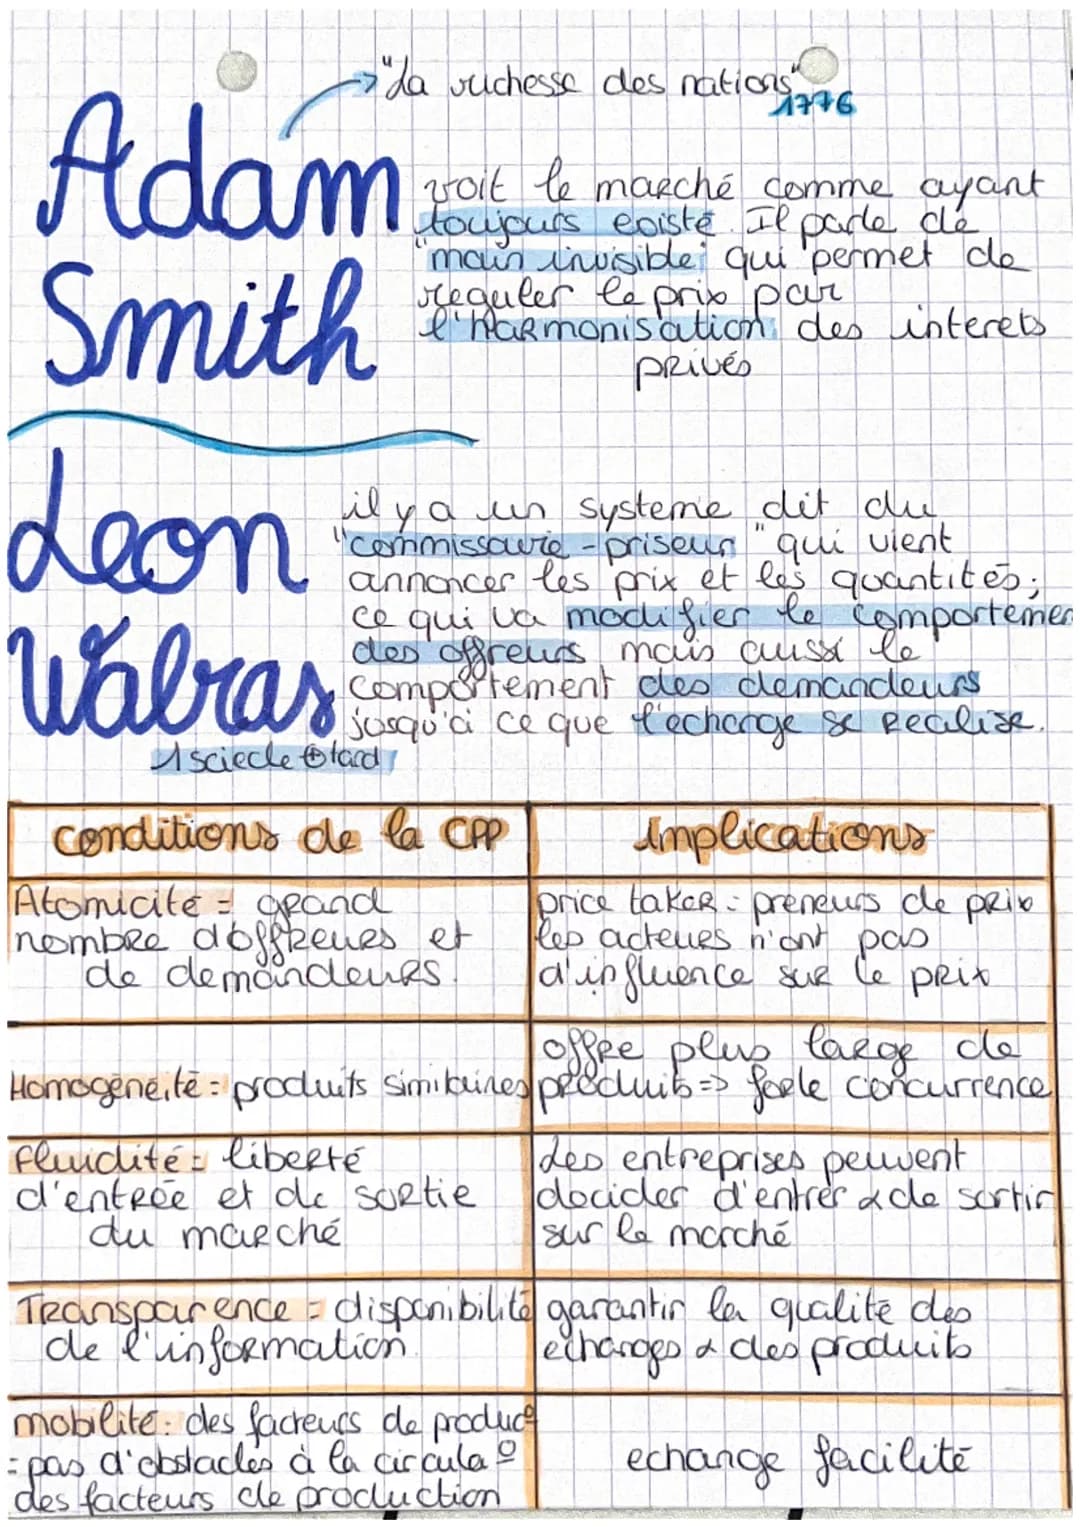 "La richesse des nations"
1776
Adam
Smith
voit le marché comme ayant
toujours existé. Il parle de
"main invisible" qui permet de
reguler le prix par
l'harmonisation des interets
privés
Leon
Walras
1 sciecle ⊕ tard
il y a un systeme dit du
"commissaire-priseur" qui vient
annoncer les prix et les quantités;
ce qui va modifier le comportemen
des offreurs mais aussi le
comportement des demandeurs
jusqu'à ce que l'echange se realise.
Conditions de la CPP
Implications
Atomicité = grand
nombre d'offreurs et
de demandeurs.
price taker = preneurs de prix
les acteurs n'ont pas
d'influence sur le prix
Homogénéité = produits similaires
offre plus large de
produits => forte concurrence
Fluidité = liberté
d'entrée et de sortie
du marché
Les entreprises peuvent
decider d'entrer & de sortir
sur le marché
Transparence = disponibilité
de l'information
garantir la qualité des
echanges & des produits
mobilité: des facteurs de produc°
= pas d'obstacles à la circula°
des facteurs de production
echange facilité